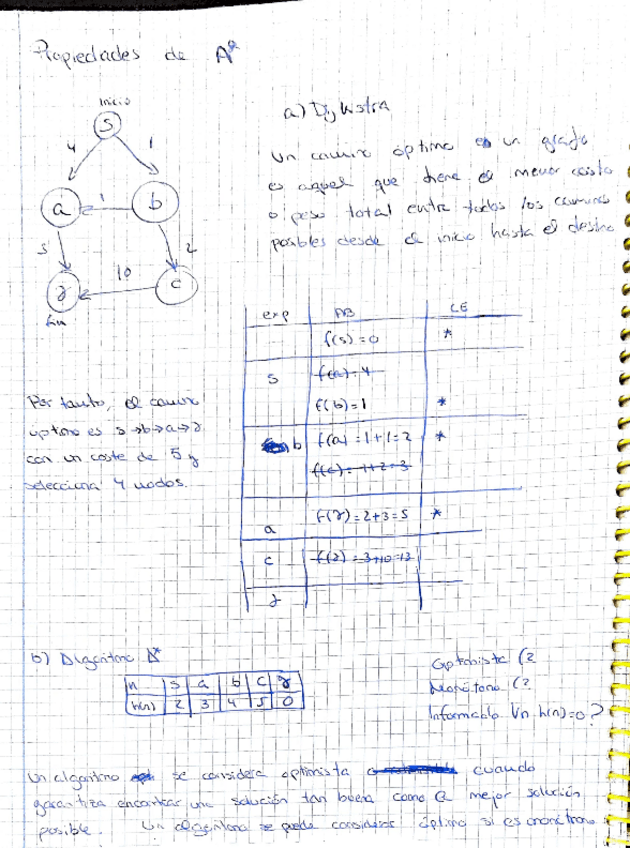 Propiedades de A*
inicio
S
4
1
a
1
b
2
10
γ
c
fin
a) Dijkstra
Un camino óptimo en un grafo
es aquel que tiene el menor coste
o peso total entre todos los caminos
posibles desde el inicio hasta el destino
exp AB CE
f(s) = 0 *
S f(a) = 4
f(b) = 1 *
b f(a) = 1+1 = 2 *
f(c) = 1+2 = 3
a f(γ) = 2+3 = 5 *
c f(γ) = 3+10 = 13
γ
Por tanto, el camino
óptimo es s→b→a→γ
con un coste de 5 y
selecciona 4 nodos.
b) Algoritmo A*
n S a b c γ
h(n) 2 3 4 5 0
Optimista (?
Monótona (?
Informado ∀n h(n)=0?
Un algoritmo se considera optimista cuando
garantiza encontrar una solución tan buena como la mejor solución
posible. Un algoritmo se puede considerar óptimo si es monótrono